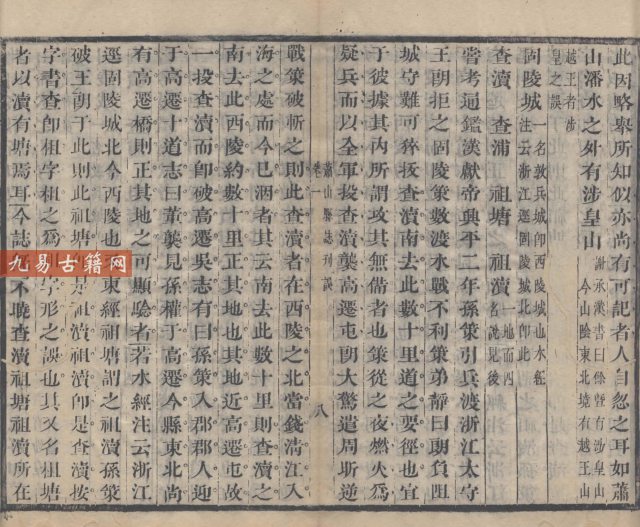 此因略舉所知似亦尚有可記者人自忽之耳如蕭
山潘水之外有涉皇山謝承漢書曰餘暨有涉皇山
今山陰東北境有越王山
越王者涉
皇之誤
固陵城一名敦兵城卽西陵城山水經
注云浙江逕固陵城北卽此
查瀆 查浦 祖塘 祖瀆一地而四
名說見後
嘗考通鑑漢獻帝興平二年孫策引兵渡浙江太守
王朗拒之固陵策數渡水戰不利策弟靜曰朗負阻
城守難可猝拔查瀆南去此數十里道之要徑也宜
于彼據其內所謂攻其無備者也策從之夜燃火爲
疑兵而以全軍投查瀆襲高遷屯朗大驚遣周昕逆
蕭山縣誌刊誤
卷一
八
戰策破斬之則此查瀆者在西陵之北當錢清江入
海之處而今已洇者其云南去此數十里則查瀆之
南去此西陵約數十里正其地也其地近高遷屯故
一投查瀆而卽破高遷吳志有曰孫策入郡郡人迎
于高遷十道志曰董襲見孫權于高遷今縣東北尚
有高遷橋則正其地之可顯驗者若水經注云浙江
逕固陵城北今西陵也 東經祖塘謂之祖瀆孫策
破王朗于此則此祖塘 是祖瀆祖瀆卽是查瀆按
字書查卽柤字柤之爲 字形之誤也其又名祖塘
者以瀆有塘焉耳今誌 不曉查瀆祖塘祖瀆所在
九易古籍网